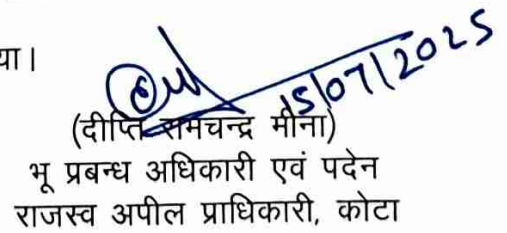 या।
15/07/2025
(दीप्ति रामचन्द्र मीना)
भू प्रबन्ध अधिकारी एवं पदेन
राजस्व अपील प्राधिकारी, कोटा